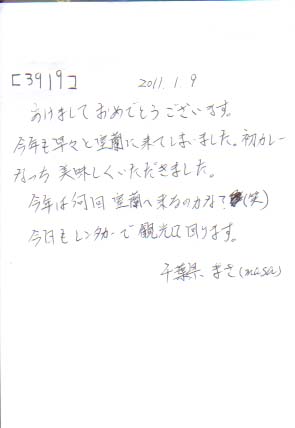 [3919] 2011.1.9
あけましておめでとうございます。
今年も早々と室蘭に来てしまいました。初カレー
なっち 美味しくいただきました。
今年は何回室蘭へ来るのかなて(笑)
今日もレンタカーで観光に回ります。
千葉県、まさ(masa)